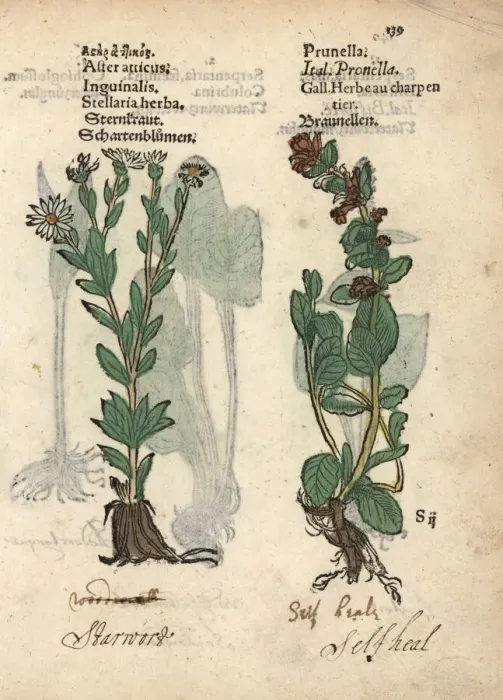 139
Aster atticus.
Inguinalis.
Stellaria herba.
Sternkraut.
Schartenblůmen.
Prunella.
Ital. Pronella.
Gall. Herbe au charpen
tier.
Braunellen.
S ij
Starwort
Self heale
Selfheal